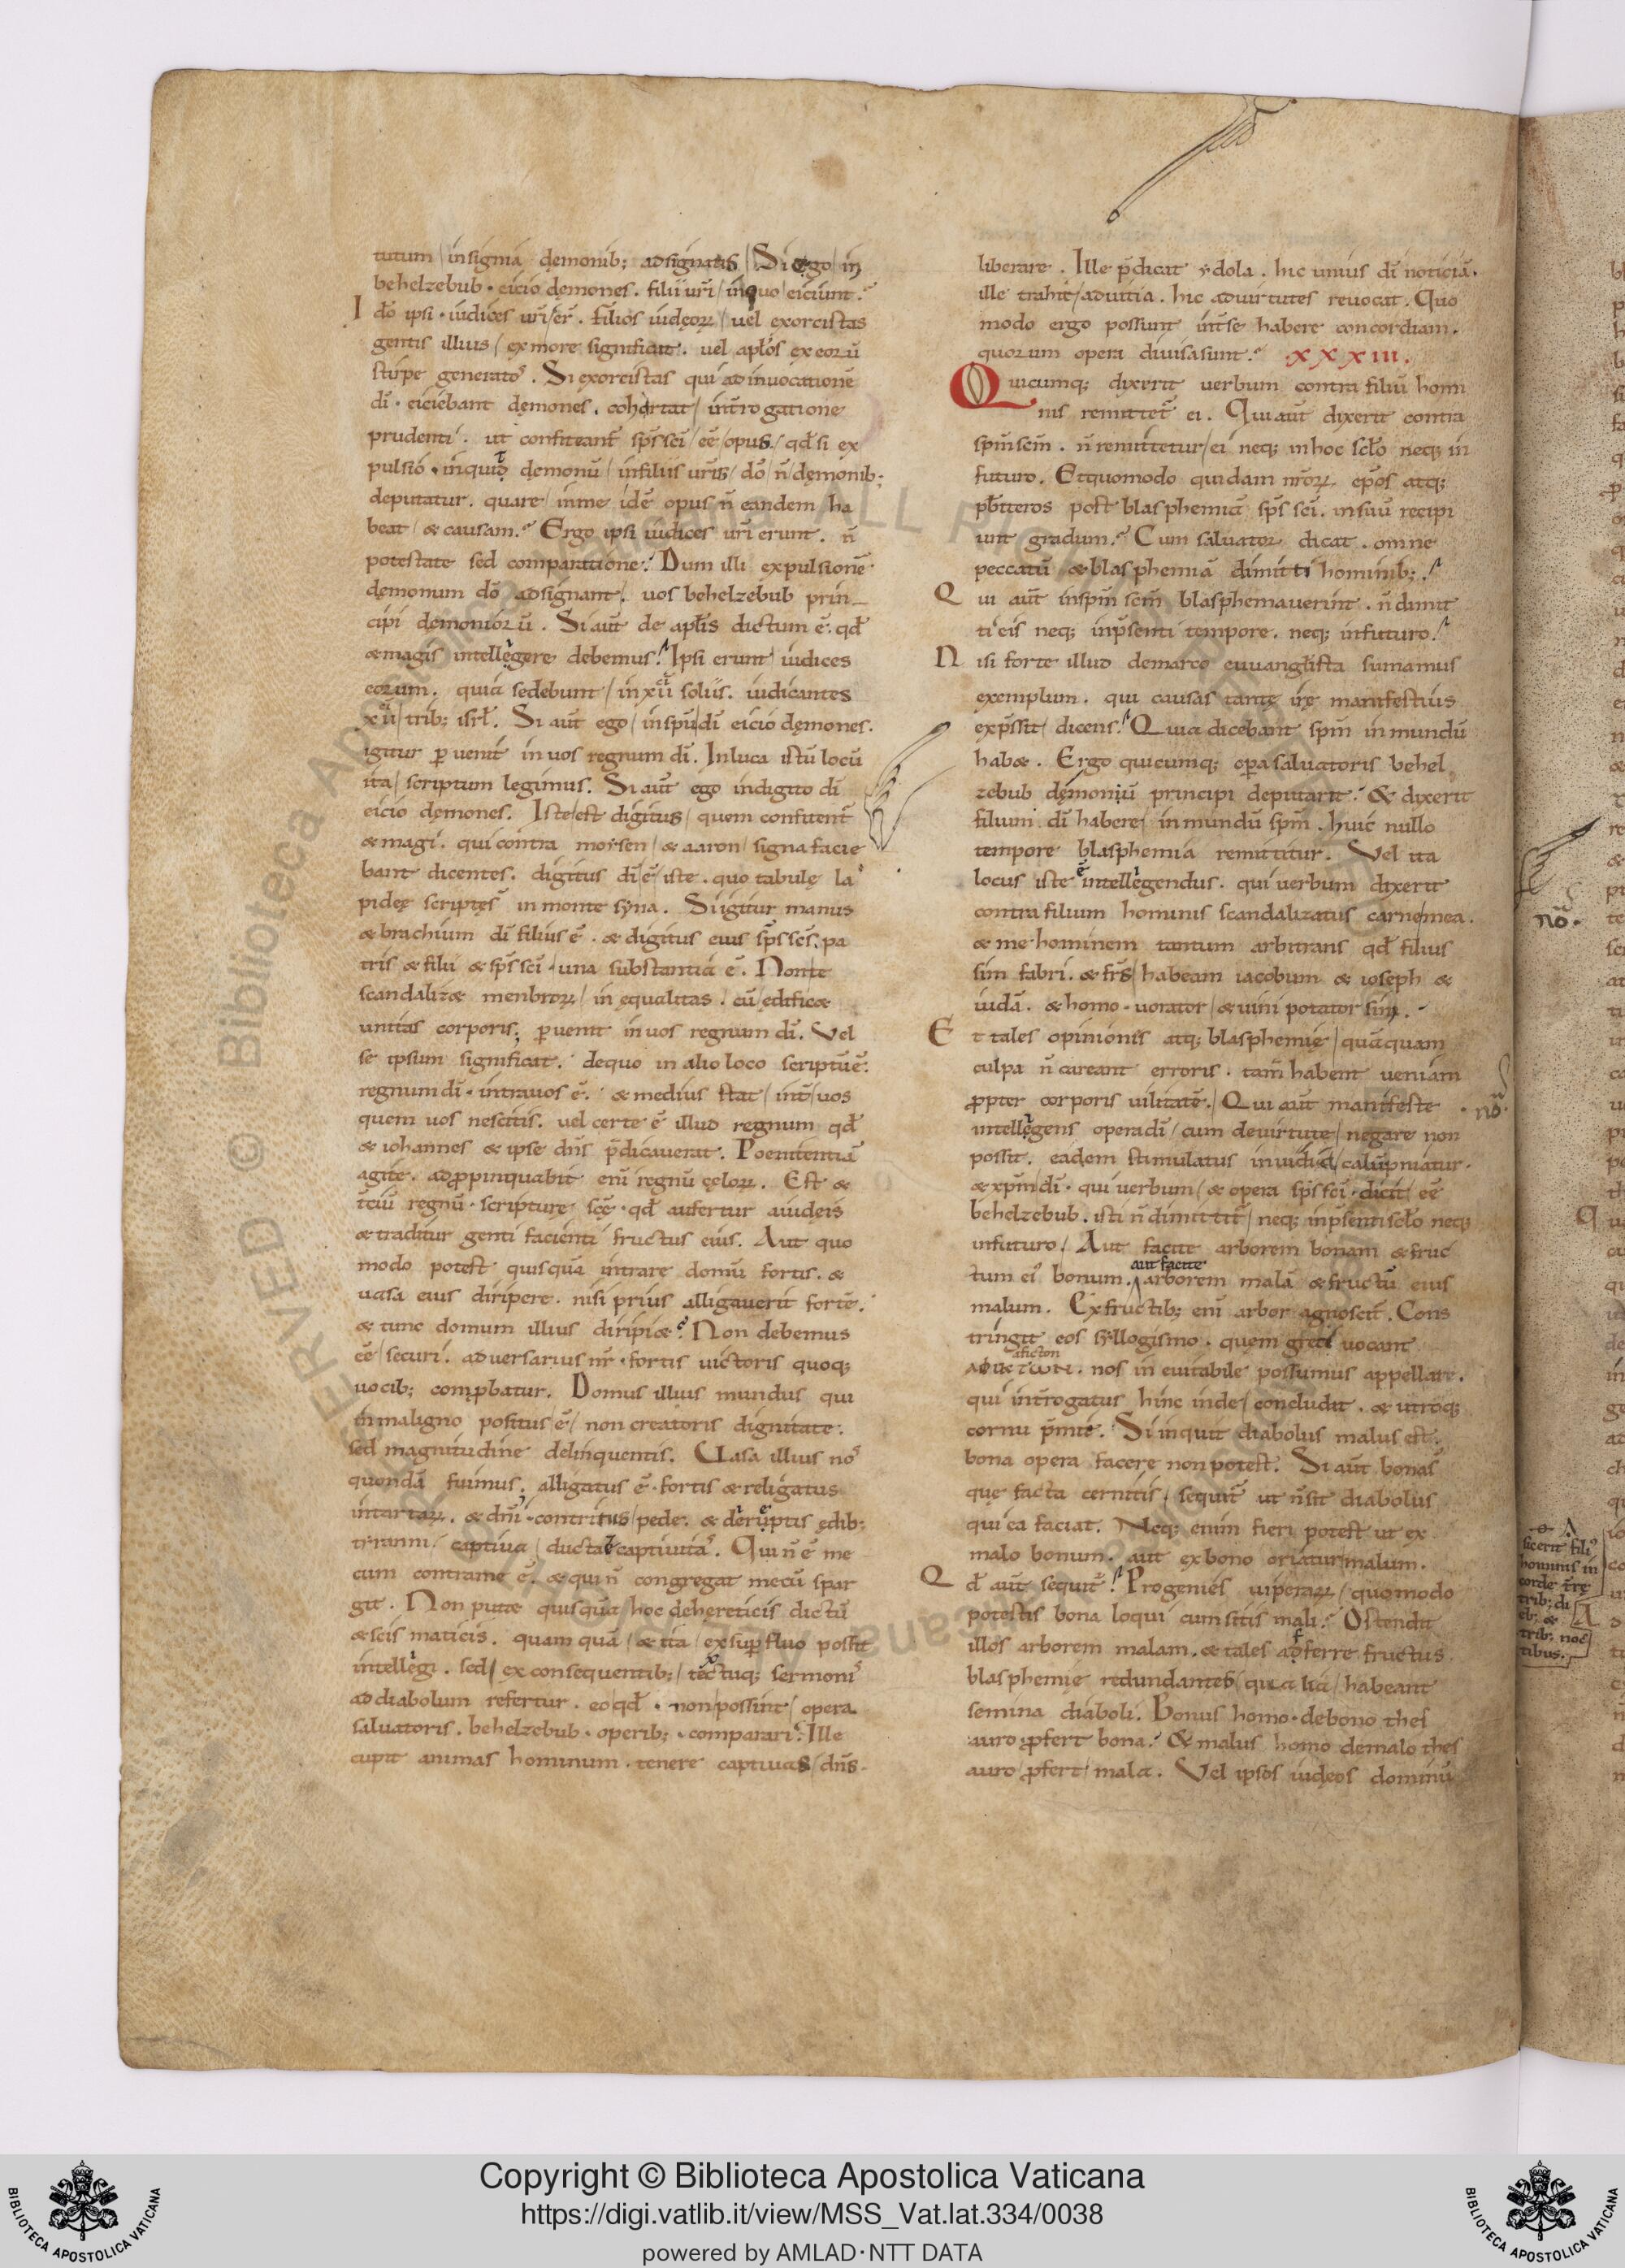 tutum / insignia demonib; adsignatis / Si ego / in
behelzebub · eicio demones . filii ur̄i / inquo / eiciunt .
I dō ipsi · iudices ur̄i / er̄ . filios iudęoꝝ / uel exorcistas
gentis illius / ex more significat . uel apl̄os ex eorū
stirpe generatos . Si exorcistas qui ad inuocationē
dī · eiciebant dęmones . cohortat / int̄rogatione
prudenti . ut confiteant̄ sp̄s sc̄i / eē / opus / qd̄ si ex
pulsio · inquid demonū / infiliis ur̄is / dō / n̄ / dęmonib;
deputatur . quare / inme idē opus n̄ eandem ha
beat / & causam . Ergo ipsi iudices ur̄i erunt . n̄
potestate sed comparatione . Dum illi expulsionē
dęmonum dō adsignant . uos behelzebub prin
cipi dęmoniorū . Si aut̄ de apl̄is dictum ē . qd̄
& magis intellegere debemus . Ipsi erunt iudices
eorum . quia sedebunt / in xii soliis . iudicantes
xii / trib; isrl̄ . Si aut̄ ego / in spū / dī eicio dęmones .
igitur ꝑuenit in uos regnum dī . In luca istū locū
ita / scriptum legimus . Si aut̄ ego indigito dī
eicio demones . Iste / est digitus / quem confitent̄
& magi . qui contra moysen / & aaron / signa facie
bant dicentes . digitus dī / ē / iste . quo tabulę la
pideę scriptęs in monte syna . Si igitur manus
& brachium dī filius ē . & digitus eius sp̄s sc̄s . pa
tris & filii & sp̄s sc̄i · una substantia ē . Non te
scandaliz& menbroꝝ / in ęqualitas . cū / edific&
unitas corporis ; ꝑuenit in uos regnum dī . Vel
se ipsum significat . dequo in alio loco scriptū ē .
regnum dī · intra uos ē . & medius stat / int̄ / uos
quem uos nescitis . uel certe ē illud regnum qd̄
& iohannes & ipse dn̄s p̄dicauerat . Poenitentiā
agite . adꝓpinquabit enī regnū cęloꝝ . Est &
t̄ciū regnū · scripturę sc̄ę · qd̄ aufertur a iudeis
& traditur genti facienti fructus eius . Aut quo
modo potest quisquā intrare domū fortis . &
uasa eius diripere . nisi prius alligauerit fortē .
& tunc domum illius diripi& . Non debemus
eē / securi . aduersarius nr̄ · fortis uictoris quoq;
uocib; comꝓbatur . Domus illius mundus qui
in maligno positus ē / non creatoris dignitate .
sed magnitudine delinquentis . Uasa illius nos
quondā fuimus . alligatus ē · fortis & religatus
in tartaꝝ . & dn̄i · contritus / pede . & deruptis ędib;
tiranni / captiua / ducta ē captiuitas . Qui n̄ ē me
cum contra me ē . & qui n̄ congregat mecū spar
git . Non put& quisquā hoc dehereticis dictū
& scismaticis . quam quā / & ita / ex suꝑfluo possit
intellegi . sed / ex consequentib; / textuq; sermonis
ad diabolum refertur . eo / qd̄ · non / possint / opera
saluatoris . behelzebub · operib; · comparari . Ille
cupit animas hominum · tenere captiuas / dn̄s
liberare . Ille p̄dicat ydola . hic unius dī noticiā .
ille trahit / ad uitia . hic ad uirtutes reuocat . Quo
modo ergo possunt int̄se habere concordiam .
quorum opera diuisa sunt . · X X X III .
Quicumq; dixerit uerbum contra filiū homi
nis remittet̄ ei . Qui aut̄ dixerit contra
spm̄ scm̄ . n̄ remittetur / ei neq; in hoc scl̄o neq; in
futuro . Et quomodo quidam nr̄oꝝ ep̄os atq;
pb̄iteros post blasphemiā sp̄s sc̄i . in suū recipi
unt gradum . Cum saluator dicat . omne
peccatū & blasphemiā dimitti hominib; .
Q ui aut̄ in spm̄ scm̄ blasphemauerint . n̄ dimit
ti eis neq; in p̄senti tempore . neq; in futuro .
N isi forte illud de marco euuangl̄ista sumamus
exemplum . qui causas tantę irę manifestius
exp̄ssit / dicens . Quia dicebant spm̄ in mundū
hab& . Ergo quicumq; oꝑa saluatoris behel
zebub dęmoniū principi deputarit . & dixerit
filium dī habere / in mundū spm̄ . huic nullo
tempore blasphemia remittitur . Vel ita
locus iste ē intellegendus . qui uerbum dixerit
contra filium hominis scandalizatus carne / mea .
& me hominem tantum arbitrans qd̄ filius
sim fabri . & fr̄s / habeam iacobum & ioseph &
iudā . & homo · uorator / & uini potator sim .
E t tales opinionis atq; blasphemię / quāquam
culpa n̄ careant erroris . tam̄ habent ueniam
ꝓpter corporis uilitatē . / Qui aut̄ manifeste · nō ·
intellegens opera dī / cum de uirtute / negare non
possit . eadem stimulatus inuidia / calūpniatur .
& xpm̄ dī · qui uerbum / & opera sp̄s sc̄i · dicit / eē
behelzebub . isti n̄ dimittit̄ / neq; in p̄senti scl̄o neq;
in futuro / Aut facite arborem bonam & fruc
aut facite
tum ei' bonum . arborem malā & fructū eius
malum . Ex fructib; enī arbor agnoscit̄ . Cons
tringit eos syllogismo . quem greci uocant
aficton
ΑΦΥΚΤωΝ . nos in euitabile possumus appellare .
qui int̄rogatus hinc inde / concludit . & utroq;
cornu p̄mit . Si inquit diabolus malus est .
bona opera facere non potest . Si aut̄ bonas
quę facta cernitis . sequit̄ ut n̄ sit diabolus
qui ea faciat . Neq; enim fieri potest ut ex
malo bonum . aut ex bono oriatur malum .
Q d̄ aut̄ sequit̄ . Progenies uiperaꝝ / quomodo
potestis bona loqui cum sitis mali . Ostendit
illos arborem malam . & tales adferre fructus
blasphemię redundantes / qualia / habeant
semina diaboli . Bonus homo · debono thes
auro ꝓfert bona . & malus homo demalo thes
auro / ꝓfert / mala . Vel ipsos iudęos dominū
nō ·
sicerit fili'
hominis in
corde tr̄ę
trib; di
eb; &
trib; noc
tibus .
Copyright © Biblioteca Apostolica Vaticana
https://digi.vatlib.it/view/MSS_Vat.lat.334/0038
powered by AMLAD·NTT DATA
BIBLIOTECA APOSTOLICA VATICANA
BIBLIOTECA APOSTOLICA VATICANA
© Biblioteca Apostolica Vaticana ALL RIGHTS RESERVED